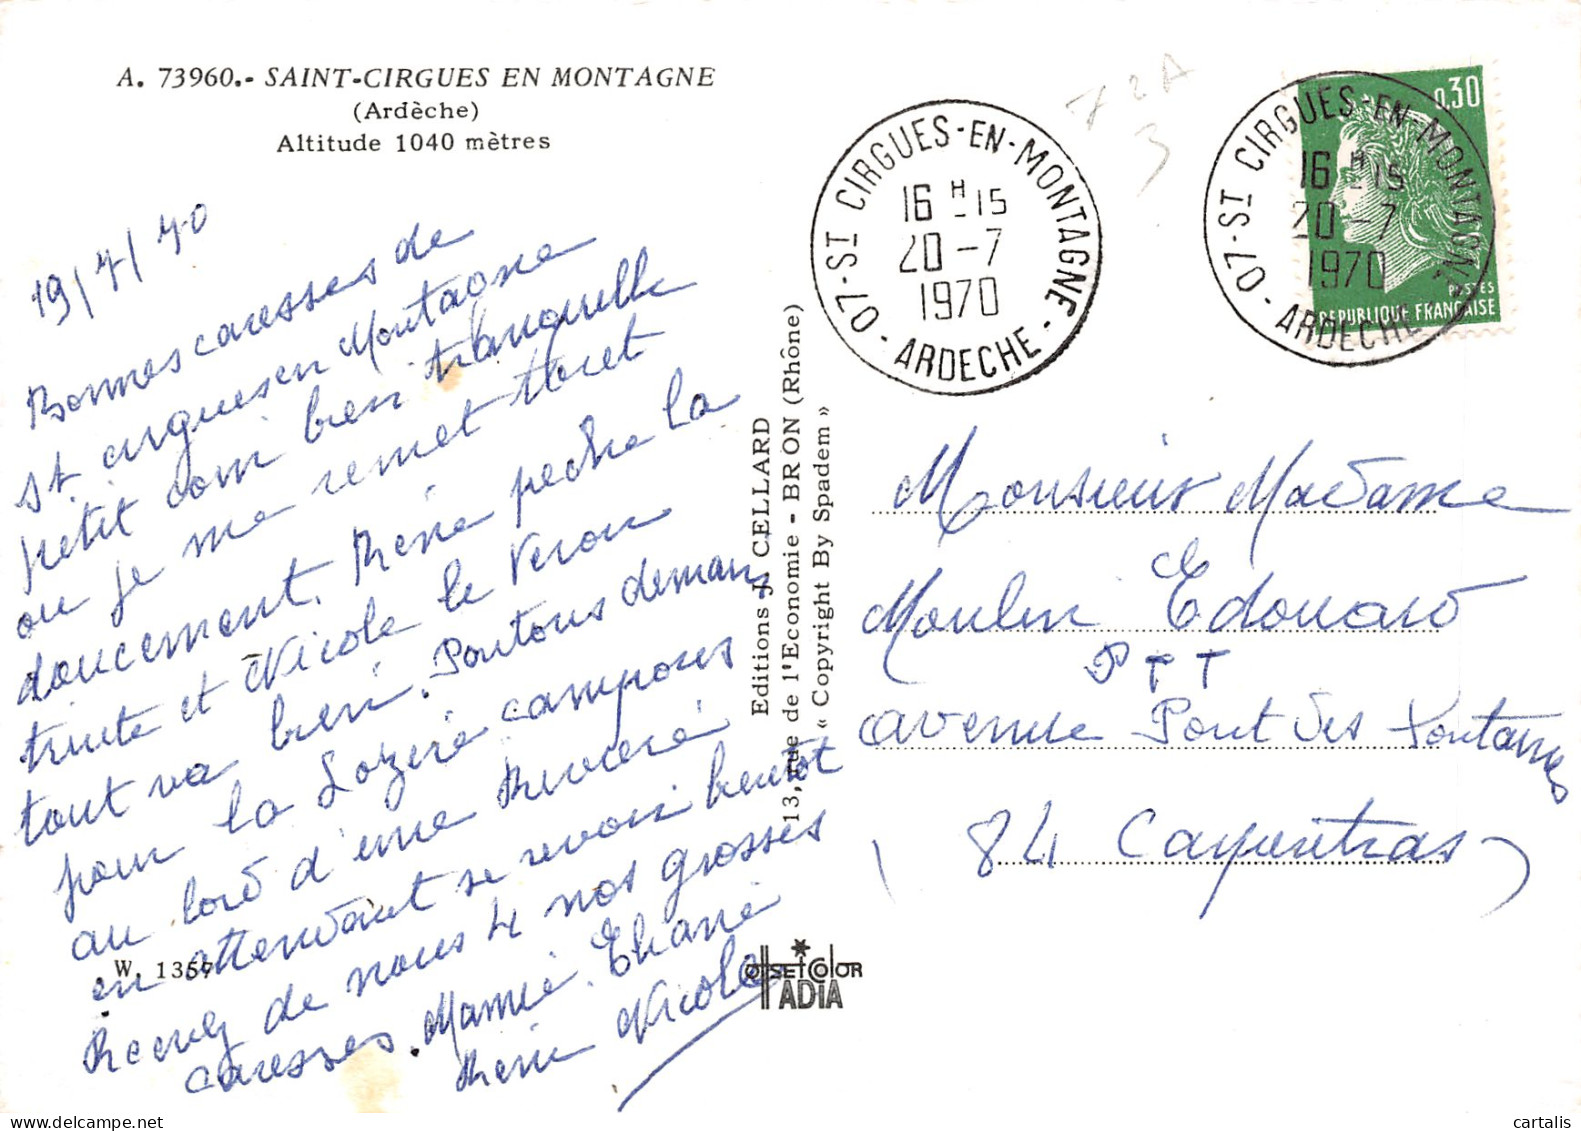 A. 73960.- SAINT-CIRGUES EN MONTAGNE
(Ardèche)
Altitude 1040 mètres
19/7/70
Bonnes caresses de
St. cirgues en Montagne
petit coin bien tranquille
ou je me remet tout et
doucement. René peche la
truite et Nicole le Veron
tout va bien. Partons demain
pour la Lozere campons
au bord d'une Riviere
en attendant se revoir bientot
Recevez de nous 4 nos grosses
caresses. Mamie.
René Nicole
W. 1359
Editions J. CELLARD
13, rue de l'Economie - BRON (Rhône)
« Copyright By Spadem »
OffsetColor
IADIA
72A
3
07-ST CIRGUES-EN-MONTAGNE
16 H 15
20-7
1970
- ARDECHE -
0,30
POSTES
REPUBLIQUE FRANÇAISE
07-ST CIRGUES-EN-MONTAGNE
16 H 15
20-7
1970
- ARDECHE
Monsieur Madame
Moulin Edouard
PTT
avenue Pont des Fontaines
84 Carpentras
cartalis